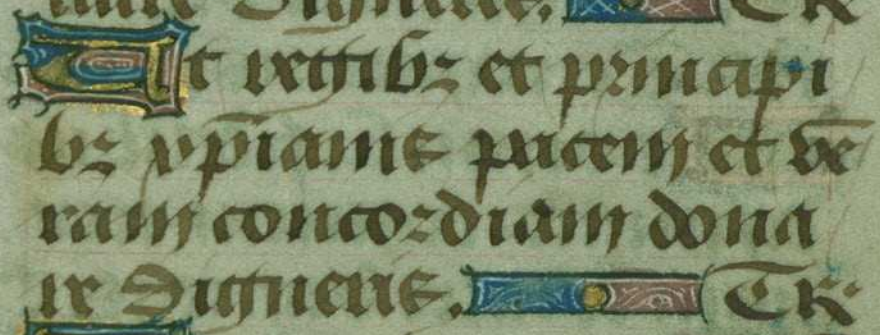 nire Digneris. TR
Ut regibꝫ et principi
bꝫ xp̄ianis pacem et ve̅
ram concordiam dona
re Digneris. TR